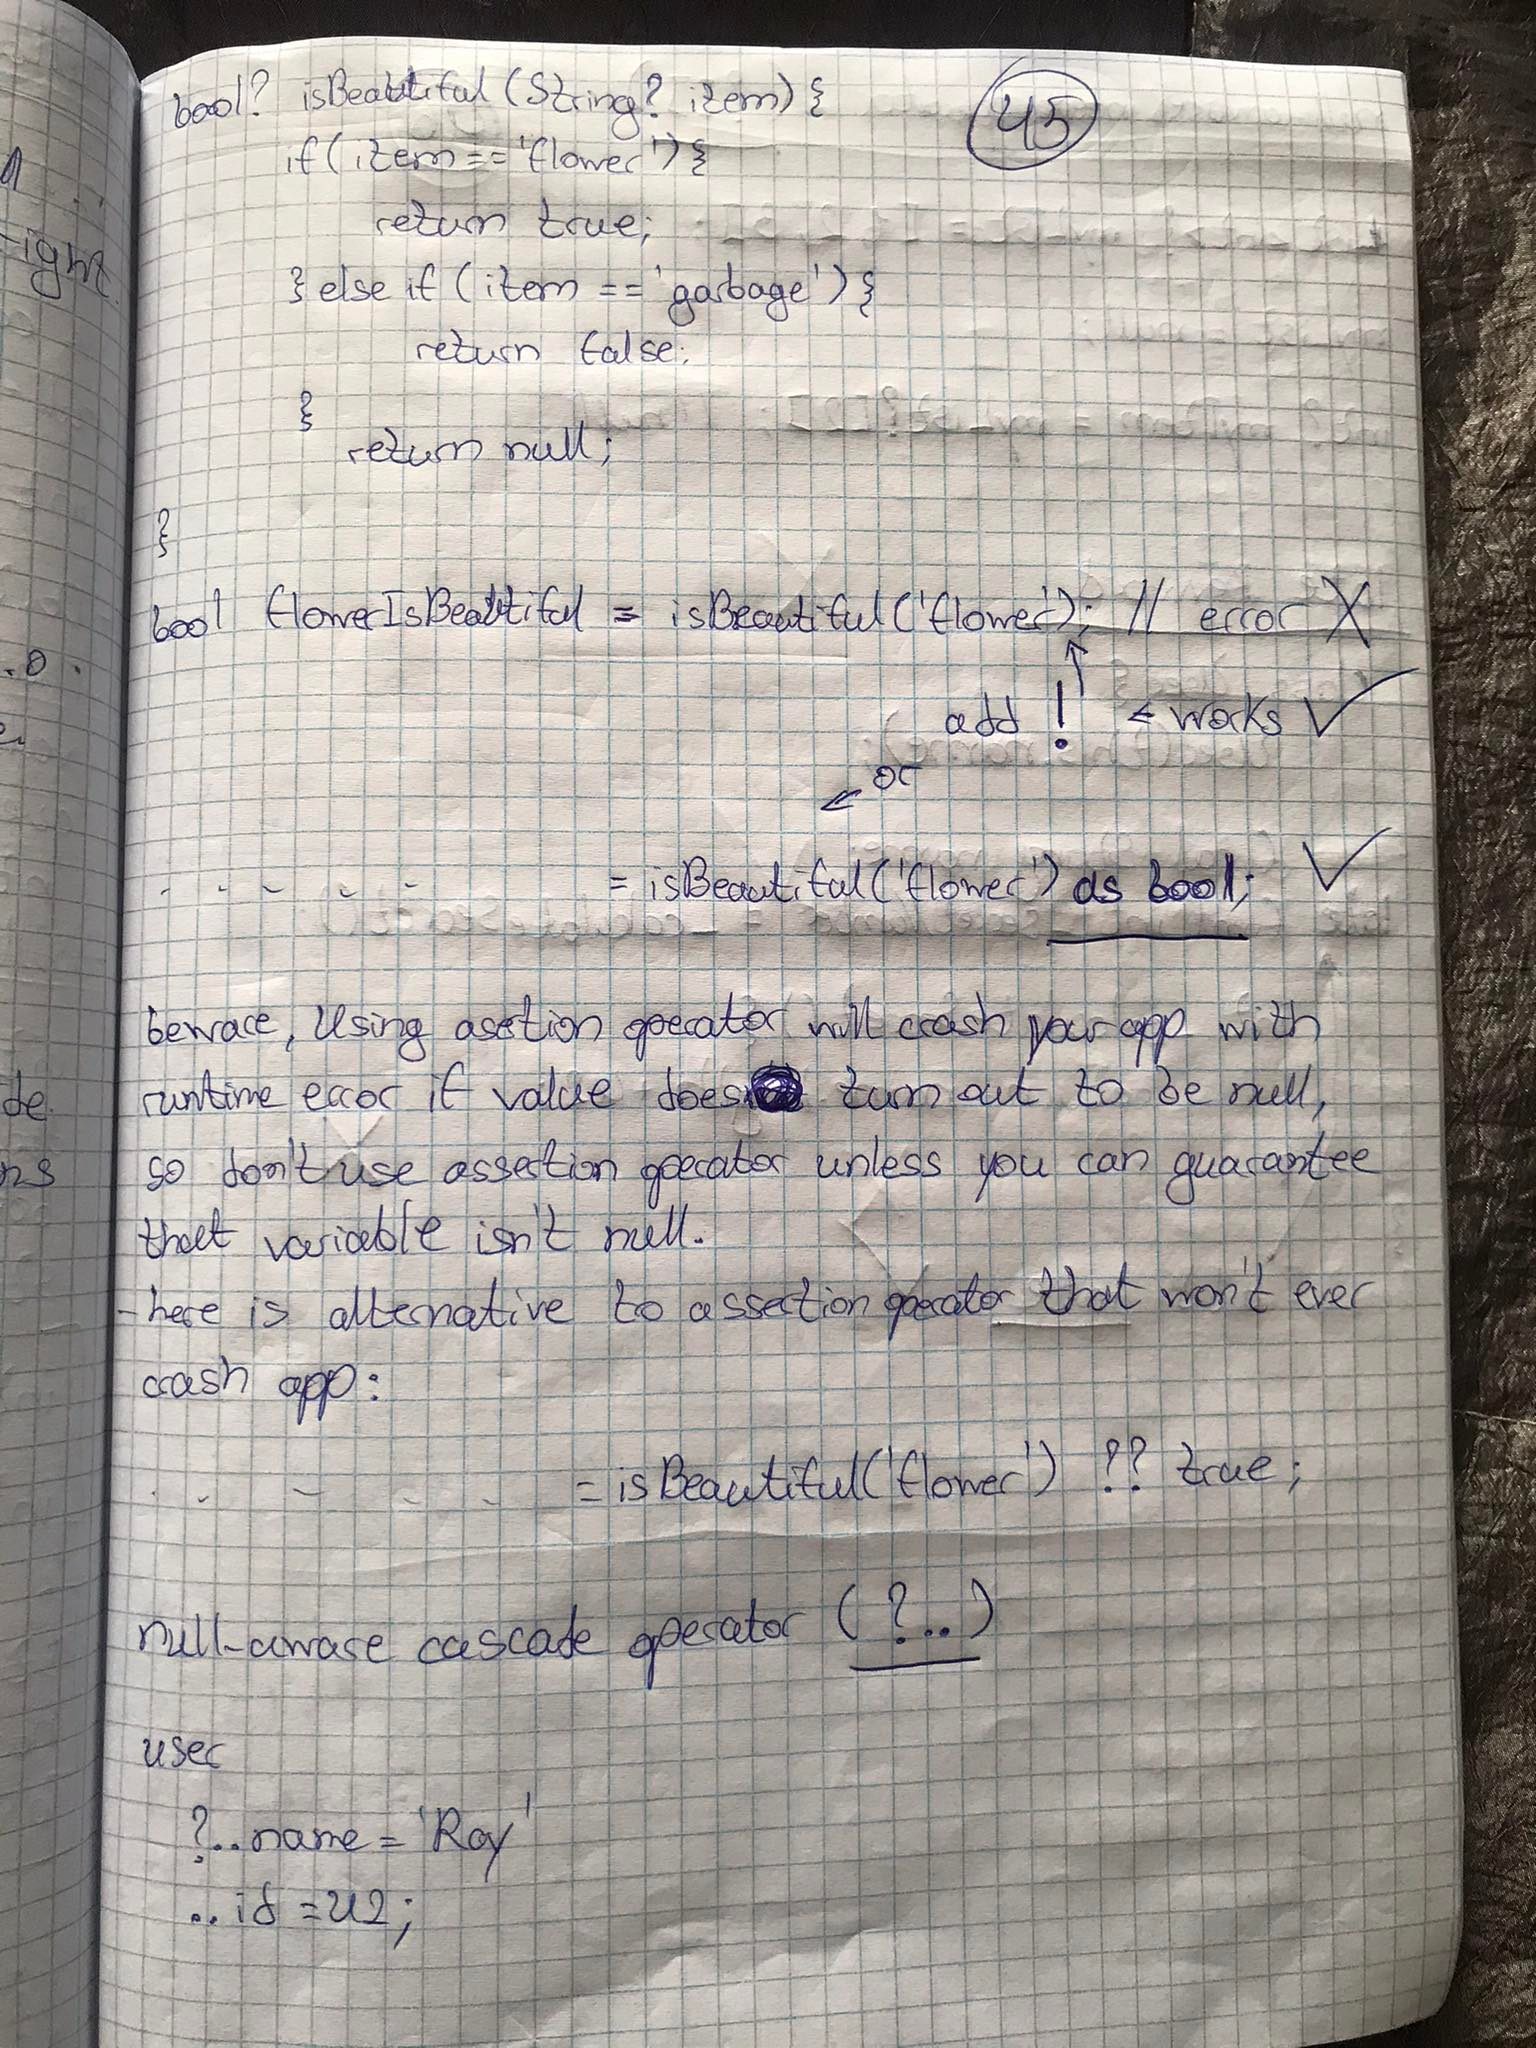 bool? isBeautiful(String? item){
45
if(item=='flower'){
return true;
}else if(item == 'garbage'){
return false;
}
return null;
}
bool flowerIsBeautiful = isBeautiful('flower'); // error X
add ! ← works ✓
← or
- - - - - = isBeautiful('flower') as bool; ✓
beware, Using asertion operator will crash your app with
runtime error if value does turn out to be null,
so don't use assertion operator unless you can guarantee
that variable isn't null.
-here is alternative to assertion operator that won't ever
crash app:
- - - - - = isBeautiful('flower') ?? true;
null-aware cascade operator (?..)
user
?..name = 'Ray'
..id = 42;
ight.
de
ns